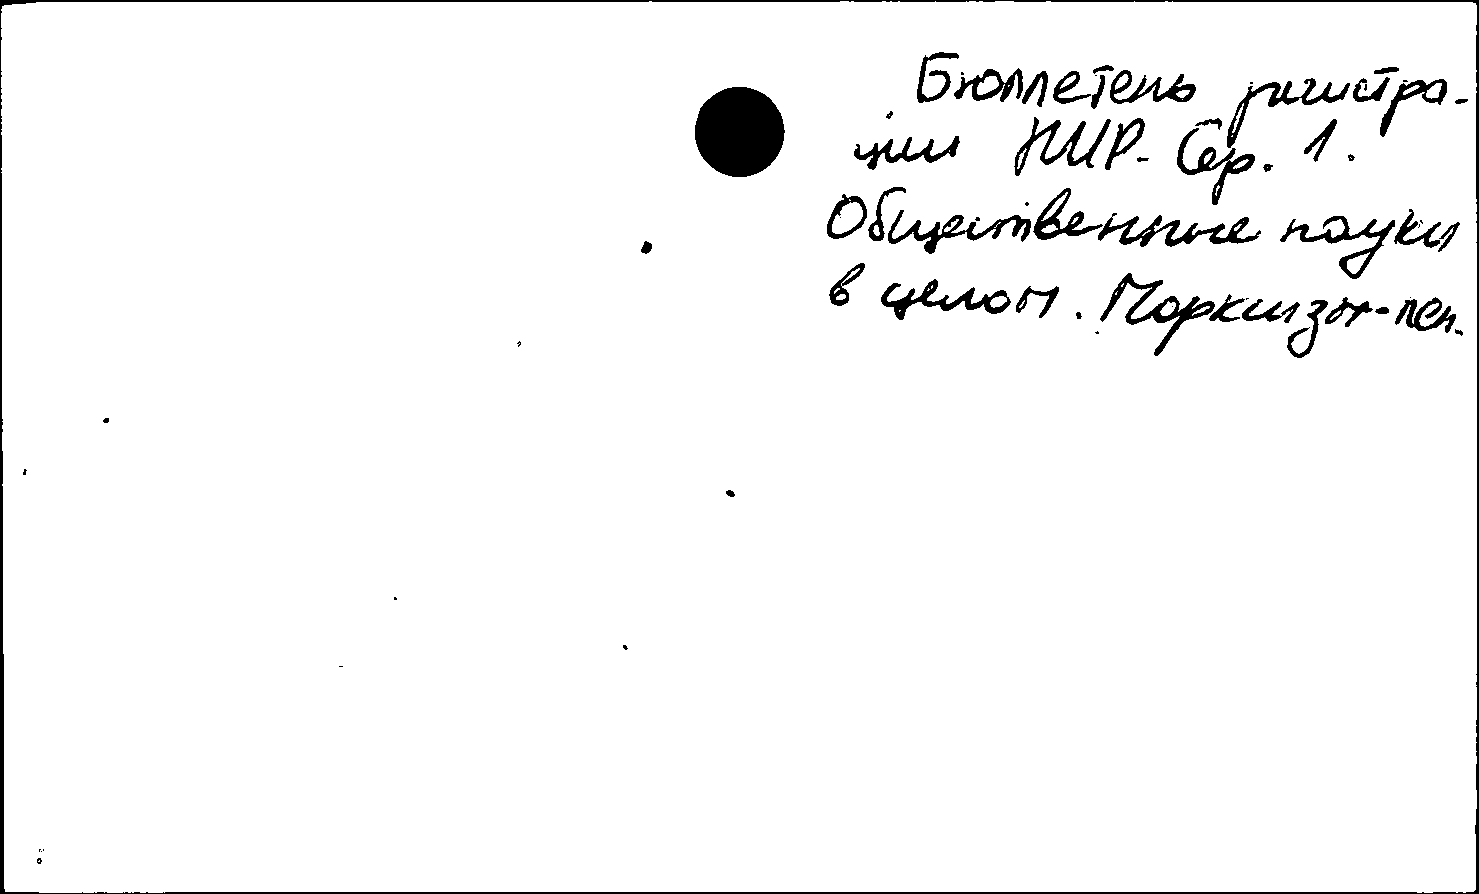 Бюллетень регистра-
ции НИР. Сер. 1.
Общественные науки
в целом. Марксизм-лен.